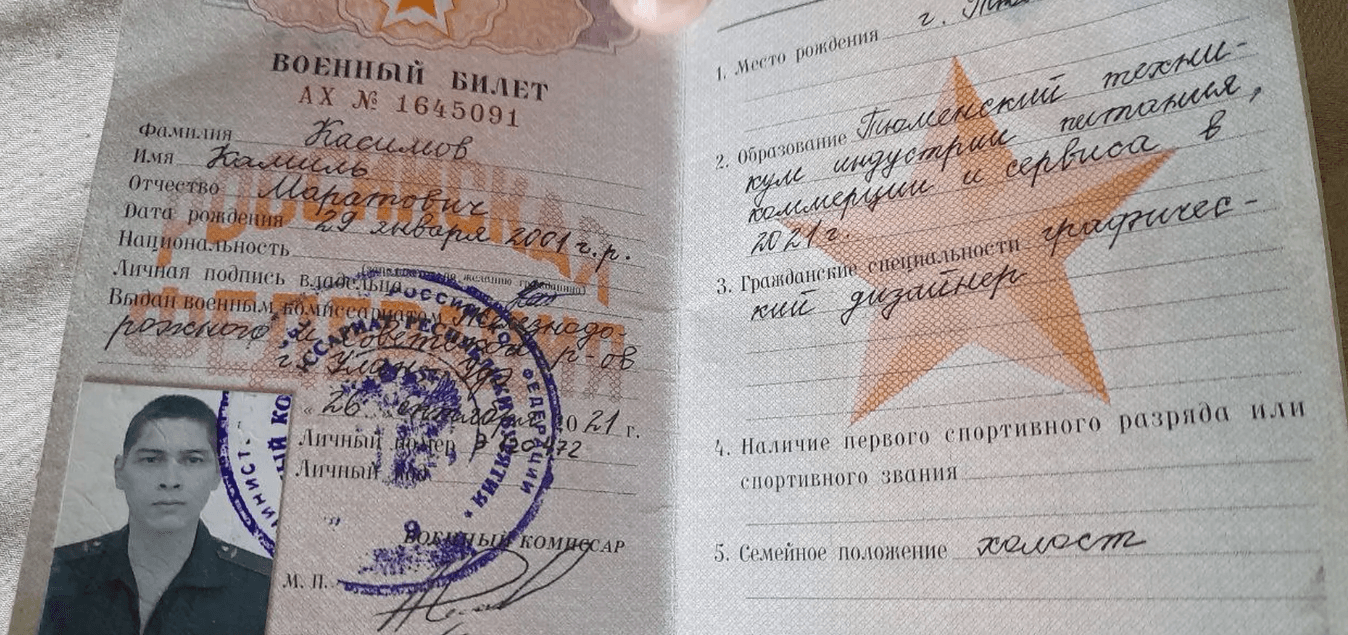 ВОЕННЫЙ БИЛЕТ
АХ № 1645091
Фамилия Касимов
Имя Камиль
Отчество Маратович
Дата рождения 29 января 2001 г.р.
Национальность
(заполняется по желанию гражданина)
Личная подпись владельца
Выдан военным комиссариатом Железнодо-
рожного и Советского р-ов
г. Улан-Удэ
"26 2021 г.
Личный номер
Личный
ВОЕННЫЙ КОМИССАР
М. П.
РОССИЙСКАЯ
РОССИЙСКОЙ ФЕДЕРАЦИИ
БУРЯТИЯ
1. Место рождения г.
2. Образование Тюменский техни-
кум индустрии питания,
коммерции и сервиса в
2021 г.
3. Гражданские специальности графичес-
кий дизайнер
4. Наличие первого спортивного разряда или
спортивного звания
5. Семейное положение холост